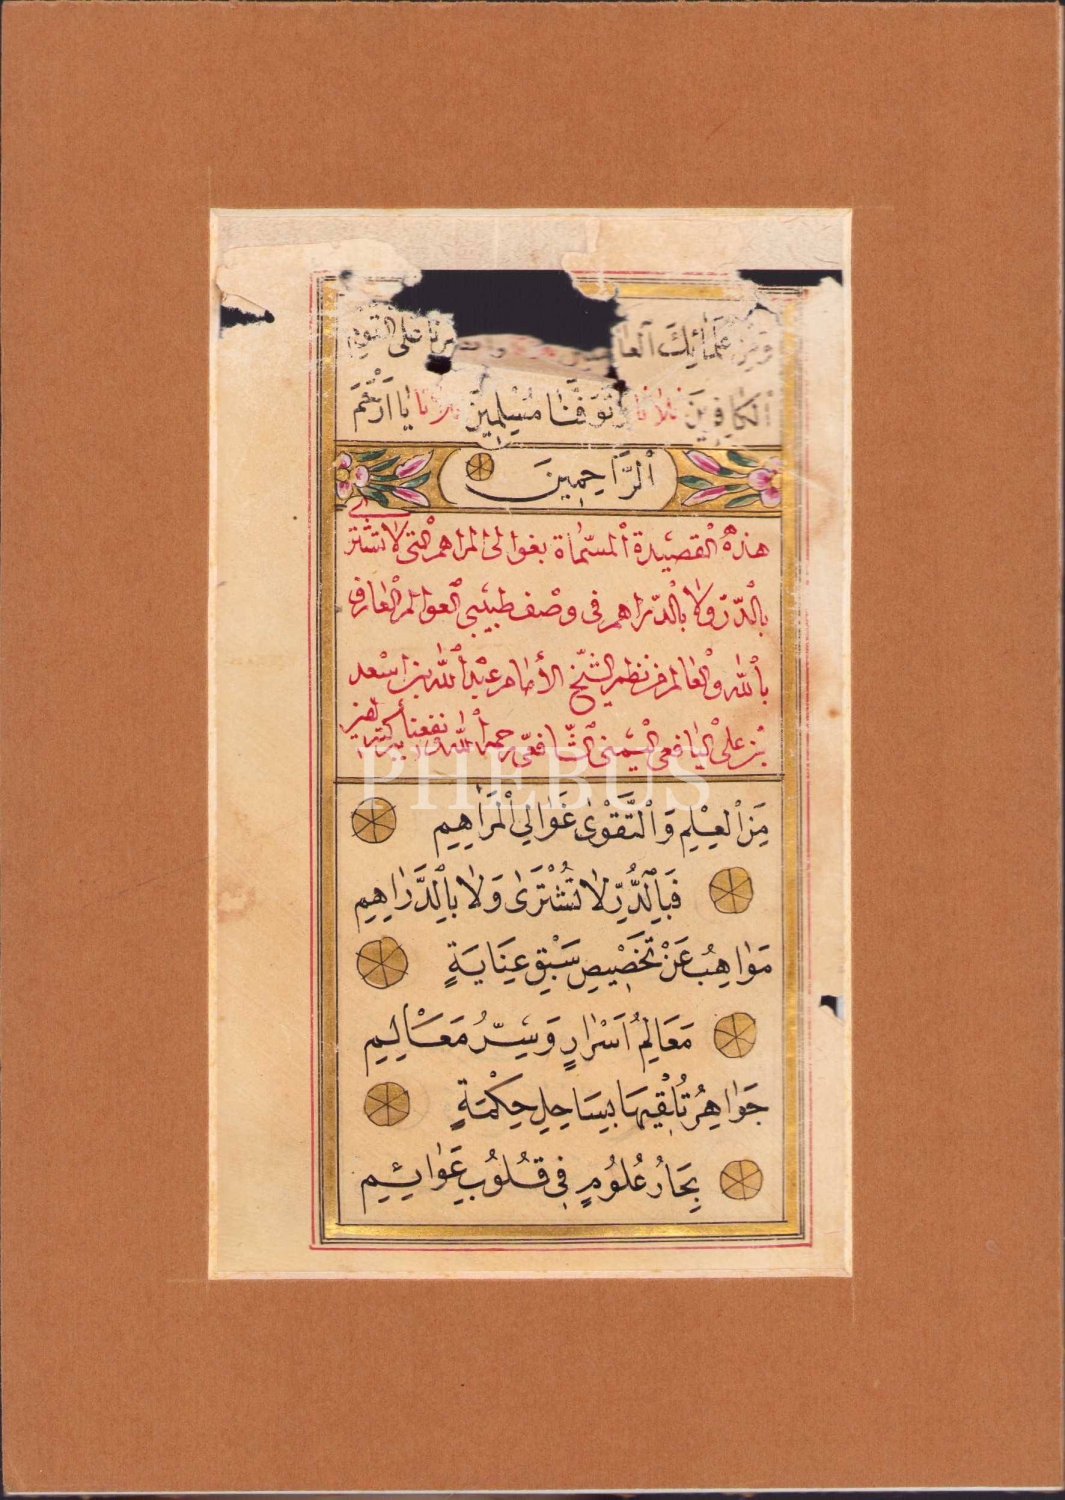 وَمِنْ عُلَمَائِكَ الْعَا
الْكَافِرِينَ ثلاثا وَتَوَفَّنَا مُسْلِمِينَ ثلاثا يَا اَرْحَمَ
اَلرَّاحِمِينَ
هذه القصيدة المسمّاة بغوالى المراهم التى لا تشترى
بالدّر ولا بالدّراهم فى وصف طبيبى العوالم العارف
بالله والعالم من نظم الشّيخ الأمام عبد الله بن اسعد
بن على اليافعى اليمنى الشّافعى رحمه الله ونفعنا ببركته امين
PHEBUS
مِنَ الْعِلْمِ وَالتَّقْوٰى غَوَالِي الْمَرَاهِمِ
فَبِالدُّرِّ لَا تُشْتَرٰى وَلَا بِالدَّرَاهِمِ
مَوَاهِبُ عَنْ تَخْصِيصِ سَبْقِ عِنَايَةٍ
مَعَالِمُ اَسْرَارٍ وَسِرُّ مَعَالِمِ
جَوَاهِرُ تُلْقِيهَا بِسَاحِلِ حِكْمَةٍ
بِحَارُ عُلُومٍ فِي قُلُوبِ عَوَائِمِ